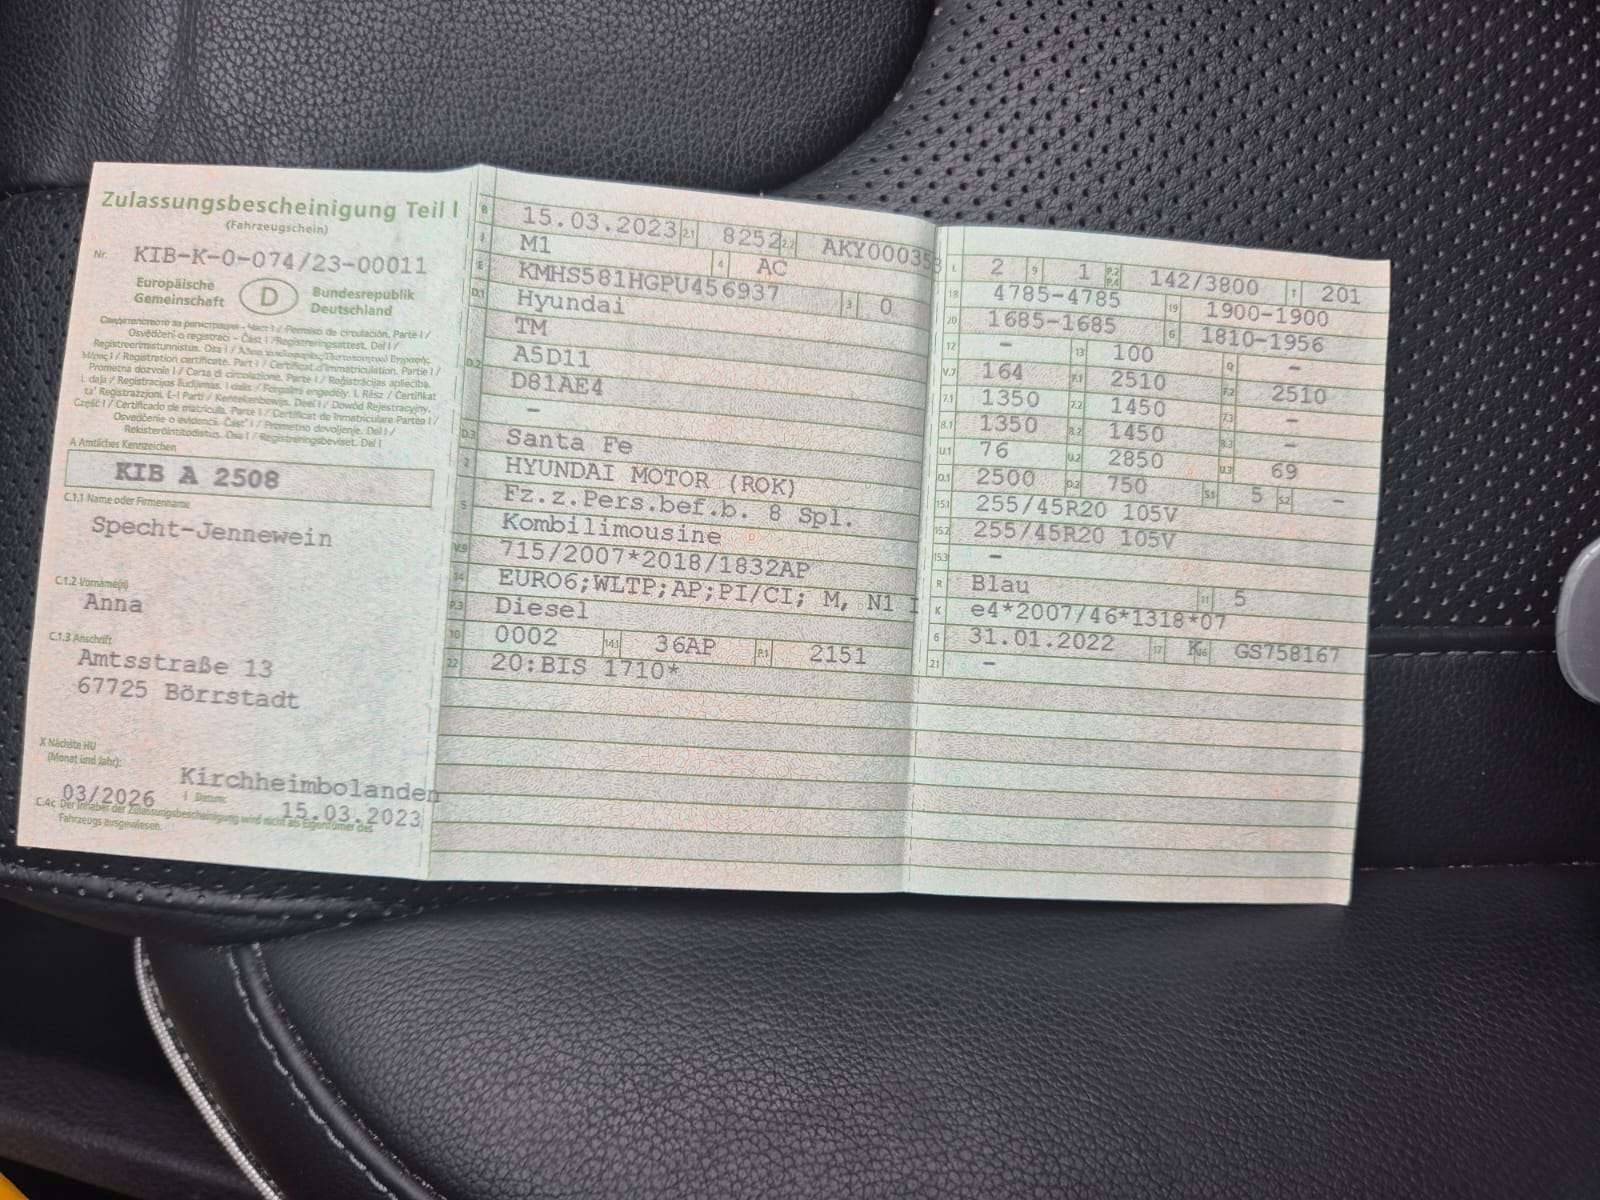 Zulassungsbescheinigung Teil I
(Fahrzeugschein)
Nr. KIB-K-0-074/23-00011
Europäische Gemeinschaft
D
Bundesrepublik Deutschland
A Amtliches Kennzeichen
KIB A 2508
C.1.1 Name oder Firmenname
Specht-Jennewein
C.1.2 Vorname(n)
Anna
C.1.3 Anschrift
Amtsstraße 13
67725 Börrstadt
X Nächste HU
(Monat und Jahr):
03/2026
Kirchheimbolanden
Datum:
15.03.2023
C.4c Der Inhaber der Zulassungsbescheinigung wird nicht als Eigentümer des
Fahrzeugs ausgewiesen.
B 15.03.2023 2.1 8252 2.2 AKY000353
J M1 4 AC
E KMHS581HGPU456937 3 0
D.1 Hyundai
TM
D.2 A5D11
D81AE4
–
D.3 Santa Fe
2 HYUNDAI MOTOR (ROK)
5 Fz.z.Pers.bef.b. 8 Spl.
Kombilimousine
V.9 715/2007*2018/1832AP
14 EURO6;WLTP;AP;PI/CI; M, N1 I
P.3 Diesel
10 0002 14.1 36AP P.1 2151
22 20:BIS 1710*
L 2 9 1 P.2 P.4 142/3800 T 201
18 4785-4785 19 1900-1900
20 1685-1685 G 1810-1956
12 – 13 100 Q –
V.7 164 F.1 2510 F.2 2510
7.1 1350 7.2 1450 7.3 –
8.1 1350 8.2 1450 8.3 –
U.1 76 U.2 2850 U.3 69
O.1 2500 O.2 750 S.1 5 S.2 –
15.1 255/45R20 105V
15.2 255/45R20 105V
15.3 –
R Blau 11 5
K e4*2007/46*1318*07
6 31.01.2022 17 K 16 GS758167
21 –